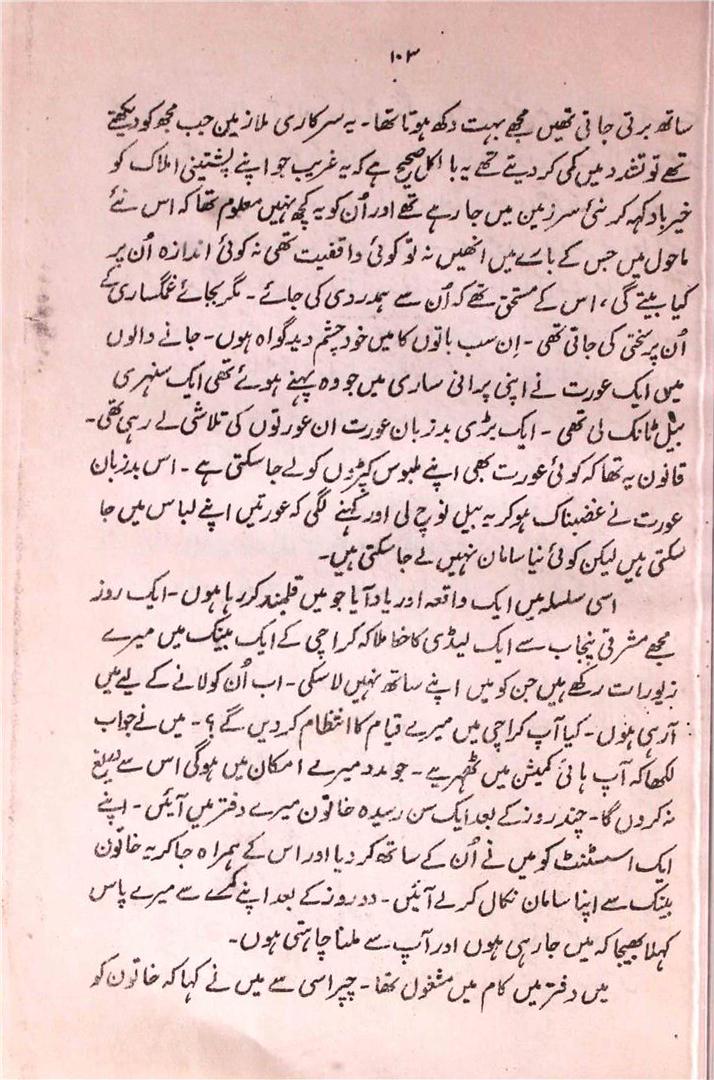 ۱۰۳
ساتھ برتی جاتی تھیں مجھے بہت دکھ ہوتا تھا۔ یہ سرکاری ملازمین جب مجھ کو دیکھتے
تھے تو تشدد میں کمی کر دیتے تھے یہ بالکل صحیح ہے کہ یہ غریب جو اپنے پشتینی املاک کو
خیرباد کہہ کر نئی سرزمین میں جا رہے تھے اور اُن کو یہ کچھ نہیں معلوم تھا کہ اس نئے
ماحول میں جس کے بارے میں انھیں نہ تو کوئی واقفیت تھی نہ کوئی اندازہ اُن پر
کیا بیتے گی، اس کے مستحق تھے کہ اُن سے ہمدردی کی جائے۔ مگر بجائے غمگساری کے
اُن پر سختی کی جاتی تھی۔ اِن سب باتوں کا میں خود چشم دید گواہ ہوں۔ جانے والوں
میں ایک عورت نے اپنی پرانی ساری میں جو وہ پہنے ہوئے تھی ایک سنہری
بیل ٹانک لی تھی۔ ایک بڑی بدزبان عورت ان عورتوں کی تلاشی لے رہی تھی۔
قانون یہ تھا کہ کوئی عورت بھی اپنے ملبوس کپڑوں کو لے جا سکتی ہے۔ اس بدزبان
عورت نے غضبناک ہو کر یہ بیل نوچ لی اور کہنے لگی کہ عورتیں اپنے لباس میں جا
سکتی ہیں لیکن کوئی نیا سامان نہیں لے جا سکتی ہیں۔
اسی سلسلہ میں ایک واقعہ اور یاد آیا جو میں قلمبند کر رہا ہوں۔ ایک روز
مجھے مشرقی پنجاب سے ایک لیڈی کا خط ملا کہ کراچی کے ایک بینک میں میرے
زیورات رکھے ہیں جن کو میں اپنے ساتھ نہیں لا سکی۔ اب اُن کو لانے کے لیے میں
آ رہی ہوں۔ کیا آپ کراچی میں میرے قیام کا انتظام کر دیں گے؟۔ میں نے جواب
لکھا کہ آپ ہائی کمیشن میں ٹھہریے۔ جو مدد میرے امکان میں ہوگی اس سے دریغ
نہ کروں گا۔ چند روز کے بعد ایک سن رسیدہ خاتون میرے دفتر میں آئیں۔ اپنے
ایک اسسٹنٹ کو میں نے اُن کے ساتھ کر دیا اور اس کے ہمراہ جا کر یہ خاتون
بینک سے اپنا سامان نکال کر لے آئیں۔ دو روز کے بعد اپنے کمرے سے میرے پاس
کہلا بھیجا کہ میں جا رہی ہوں اور آپ سے ملنا چاہتی ہوں۔
میں دفتر میں کام میں مشغول تھا۔ چپراسی سے میں نے کہا کہ خاتون کو